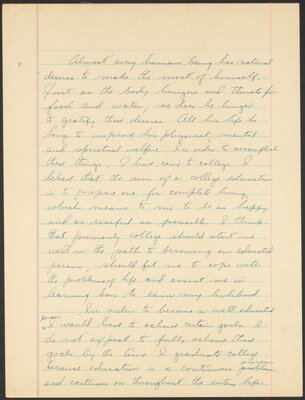 Almost every human being has natural
desires to make the most of himself.
Just as the body hungers and thirsts for
food and water, so does he hunger
to gratify these desires. All his life he
longs to improve his physical, mental
and spiritual welfare. In order to accomplish
these things, I have come to college. I
believe that the aim of a college education
is to prepare one for complete living,
which means to me to be as happy
and as useful as possible. I think
that primarily college should start me
well on the path to becoming an educated
person, should fit me to cope with
the problems of life and assist me in
learning how to earn my livelihood.
In order to become a well educated
person
I would have to achieve certain goals. I
do not expect to fully achieve these
goals by the time I graduate college
because education is a continuous process
and continues on throughout the entire life.